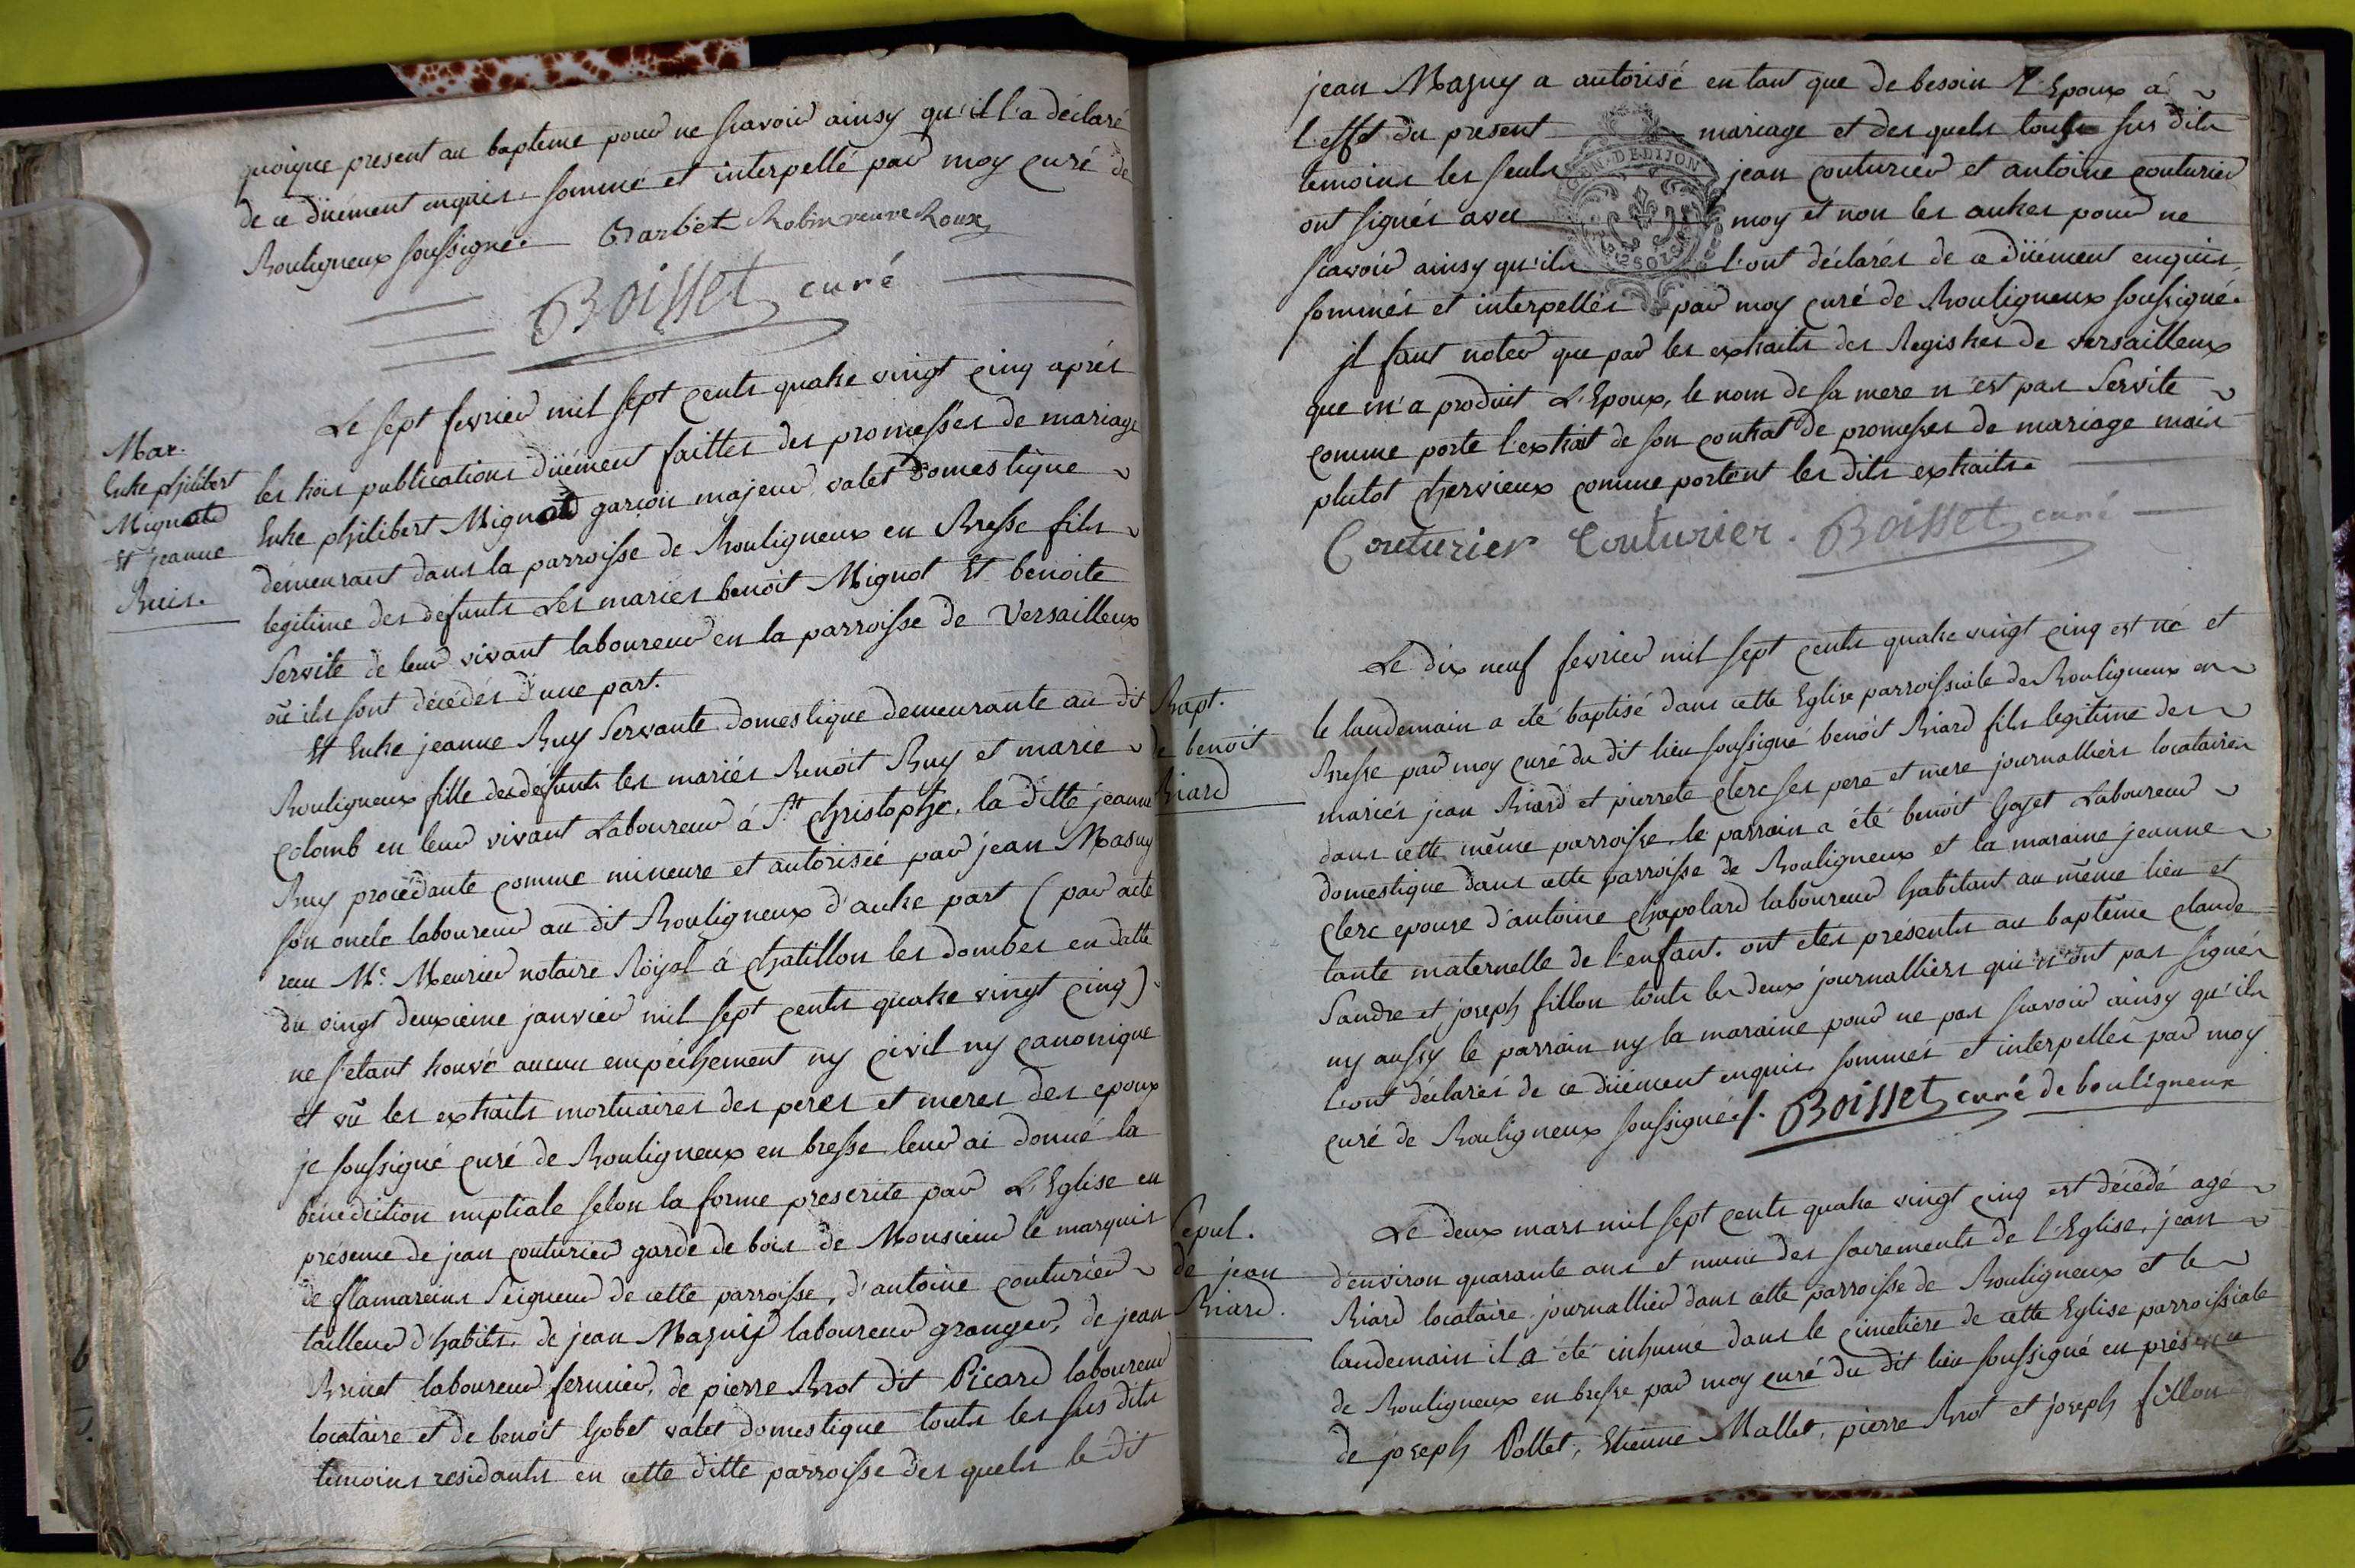 quoique present au bapteme pour ne scavoir ainsy qu'il l'a déclaré
de ce düement enquis sommé et interpellé par moy curé de
Bouligneux soussigné. Barbet Robin veuve Roux
Boisset curé
Mar.
Entre philibert
Mignot
Et jeanne
Buis.
Le sept fevrier mil sept cents quatre vingt cinq aprés
les trois publications düement faittes des promesses de mariage
Entre philibert Mignot garson majeur valet domestique
démeurant dans la parroisse de Bouligneux en Bresse fils
legitime des défunts Les mariés benoit Mignot Et benoite
Servite de leur vivant laboureur en la parroisse de Versailleux
oú ils sont décédés d'une part.
Et Entre jeanne Buy Servante domestique demeurante au dit
Bouligneux fille des défunts les mariés Benoit Buy et marie
Colomb en leur vivant Laboureur á St christophe, la ditte jeanne
Buy procédante comme mineure et autorisée par jean Masuy
son oncle laboureur au dit Bouligneux d'autre part (par acte
reçu Me. Meurier notaire Röyal á chatillon les dombes en datte
du vingt deuxieme janvier mil sept cents quatre vingt cinq)
ne s'etant trouvé aucun empéchement ny civil ny canonique
et vû les extraits mortuaires des peres et meres des epoux
je soussigné curé de Bouligneux en bresse leur ai donné la
bénédiction nuptiale selon la forme prescrite par L'Eglise en
présence de jean couturier garde de bois de Monsieur le marquis
de flamareins Seigneur de cette parroisse, d'antoine couturier
tailleur d'habits, de jean Masuy laboureur granger, de jean
Brinet laboureur fermier, de pierre Brot dit Picard laboureur
locataire et de benoit Gobet valet domestique touts les sus dits
témoins residants en cette ditte parroisse des quels le dit
jean Masuy a autorisé en tant que de besoin L'Epoux á
l'effet du present mariage et des quels touts sus dits
temoins les seuls jean couturier et antoine couturier
ont signés avec moy et non les autres pour ne
scavoir ainsy qu'ils l'ont déclarés de ce düement enquis
sommés et interpellés par moy curé de Bouligneux soussigné.
GEN. DE DIJON
SOLS
jl faut noter que par les extraits des Registres de versailleux
que m'a produit L'Epoux, le nom de sa mere n'est pas Servite
comme porte l'extrait de son contrat de promesses de mariage mais
plutot chervieux comme portent les dits extraits.
Couturier Couturier. Boisset curé
Bapt.
de benoit
Biard
Le dix neuf fevrier mil sept cents quatre vingt cinq est né et
le landemain a été baptisé dans cette Eglise parroissiale de Bouligneux en
Bresse par moy curé du dit lieu soussigné benoit Biard fils legitime des
mariés jean Biard et pierrete clerc ses pere et mere journalliers locataires
dans cette même parroisse, le parrain a été benoit Gojet Laboureur
domestique dans cette parroisse de Bouligneux et la maraine jeanne
clerc epouse d'antoine chapolard laboureur habitant au même lieu et
tante maternelle de l'enfant. ont etés présents au baptême claude
Sandre et joseph fillon touts les deux journalliers qui n'ont pas signés
ny aussy le parrain ny la maraine pour ne pas scavoir ainsy qu'ils
l'ont déclarés de ce düement enquis sommés et interpellés par moy
curé de Bouligneux soussigné./. Boisset curé de bouligneux
Sepul.
de jean
Biard.
Le deux mars mil sept cents quatre vingt cinq est décédé agé
d'environ quarante ans et muni des sacrements de l'Eglise, jean
Biard locataire journallier dans cette parroisse de Bouligneux et le
landemain il a été inhumé dans le cimetière de cette Eglise parroissiale
de Bouligneux en bresse par moy curé du dit lieu soussigné en présence
de joseph Pollet, Etienne Mallet, pierre Brot et joseph fillon